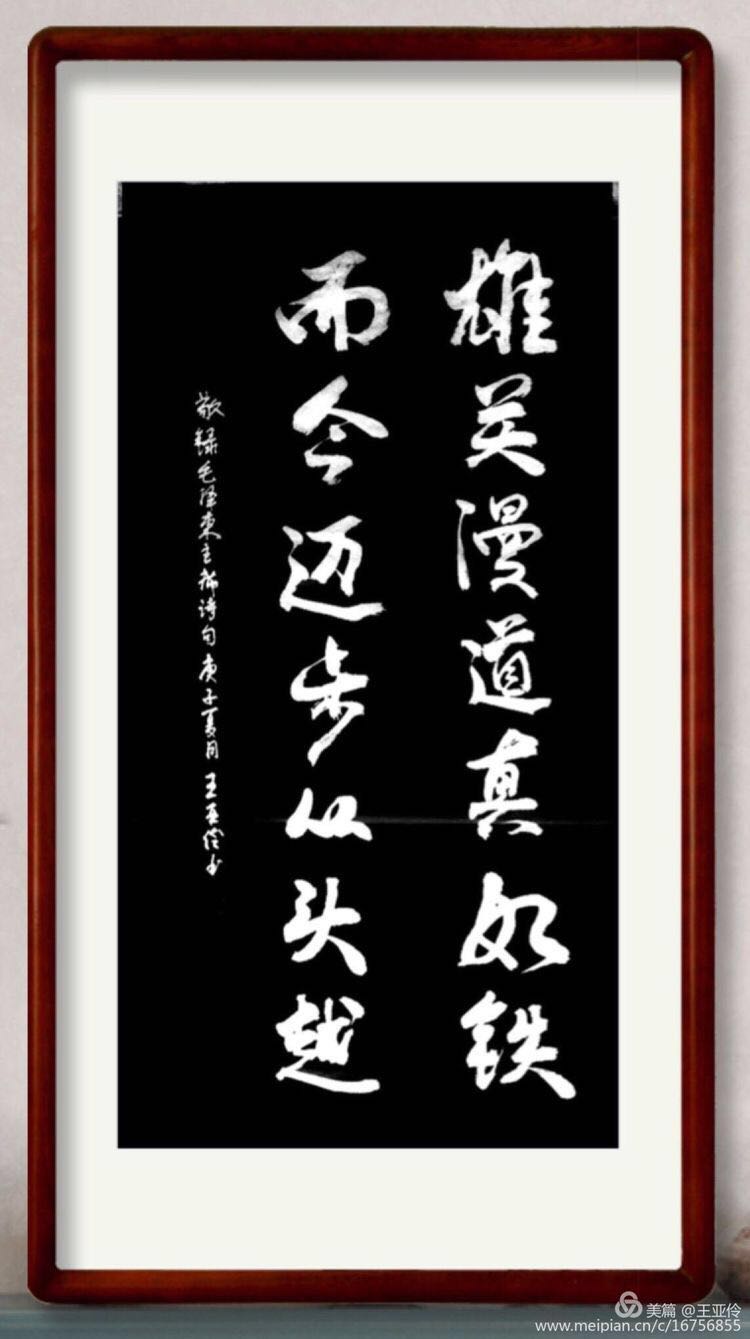 雄关漫道真如铁
而今迈步从头越
敬録毛泽东主席诗句庚子夏月王亚伶书
美篇 @王亚伶
www.meipian.cn/c/16756855